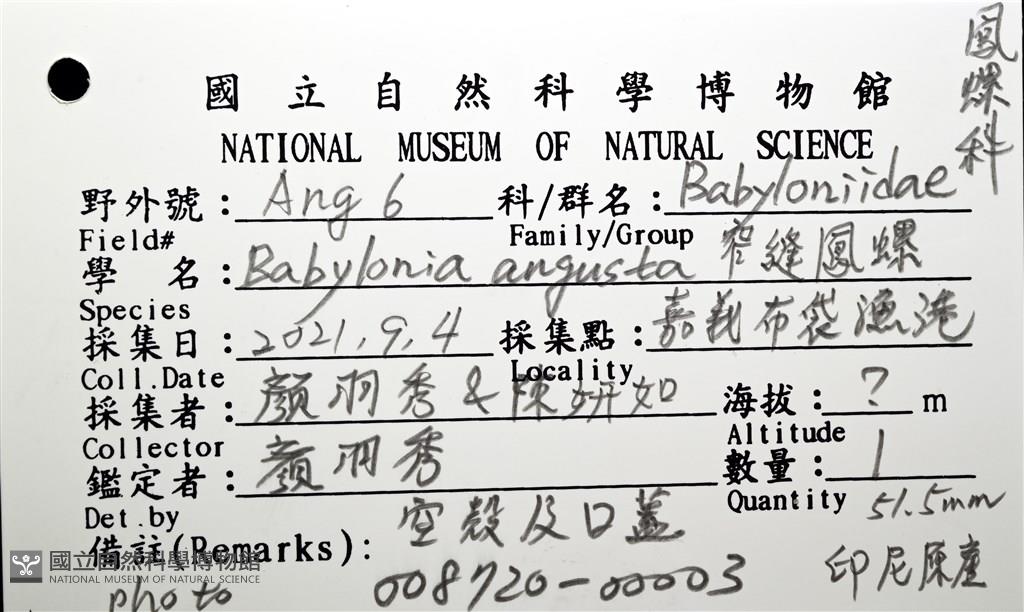 鳳螺科
國立自然科學博物館
NATIONAL MUSEUM OF NATURAL SCIENCE
野外號：Ang 6 科/群名：Babyloniidae
Field# Family/Group
學 名：Babylonia angusta 窄縫鳳螺
Species
採集日：2021,9,4 採集點：嘉義布袋漁港
Coll.Date Locality
採集者：顏羽秀 & 陳妍如 海拔：? m
Collector Altitude
鑑定者：顏羽秀 數量：1
Det.by Quantity 51.5mm
備註(Remarks)：空殼及口蓋
國立自然科學博物館
NATIONAL MUSEUM OF NATURAL SCIENCE
photo 008720-00003 印尼原產